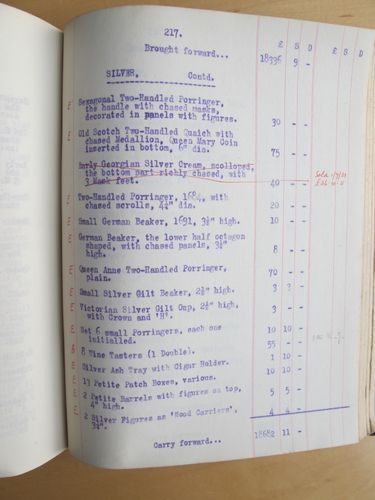 217.
£ S D £ S D
Brought forward... 18336 9 -
SILVER. Contd.
E Hexagonal Two-Handled Porringer,
the handle with chased masks,
decorated in panels with figures. 30 - -
E Old Scotch Two-Handled Quaich with
chased Medallion, Queen Mary Coin
inserted in bottom, 6" dia. 75 - -
Early Georgian Silver Cream, scolloped,
the bottom part richly chased, with
3 Mask feet. 40 - - Sold
E Two-Handled Porringer, 1684, with
chased scrolls, 4½" dia. 20 - -
E Small German Beaker, 1691, 3½" high. 10 - -
E German Beaker, the lower half octagon
shaped, with chased panels, 3½"
high. 8 - -
E Queen Anne Two-Handled Porringer,
plain. 70 - -
E Small Silver Gilt Beaker, 2½" high. 3 3 -
E Victorian Silver Gilt Cup, 2½" high.
with Crown and 'H'. 3 - -
E Set 6 small Porringers, each one
initialled. 10 10 -
8 Wine Tasters (1 Double). 55 - -
E Silver Ash Tray with Cigar Holder. 1 10 -
E 13 Petite Patch Boxes, various. 10 10 -
E 2 Petite Barrels with figures on top,
4" high. 5 5 -
E 2 Silver Figures as 'Wood Carriers',
3¼". 4 4 -
Carry forward... 18682 11 -